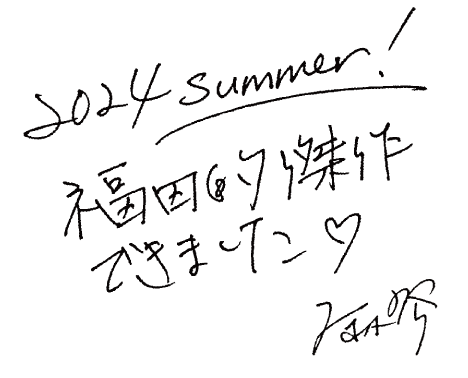 2024 summer!
福田的傑作
できました♡